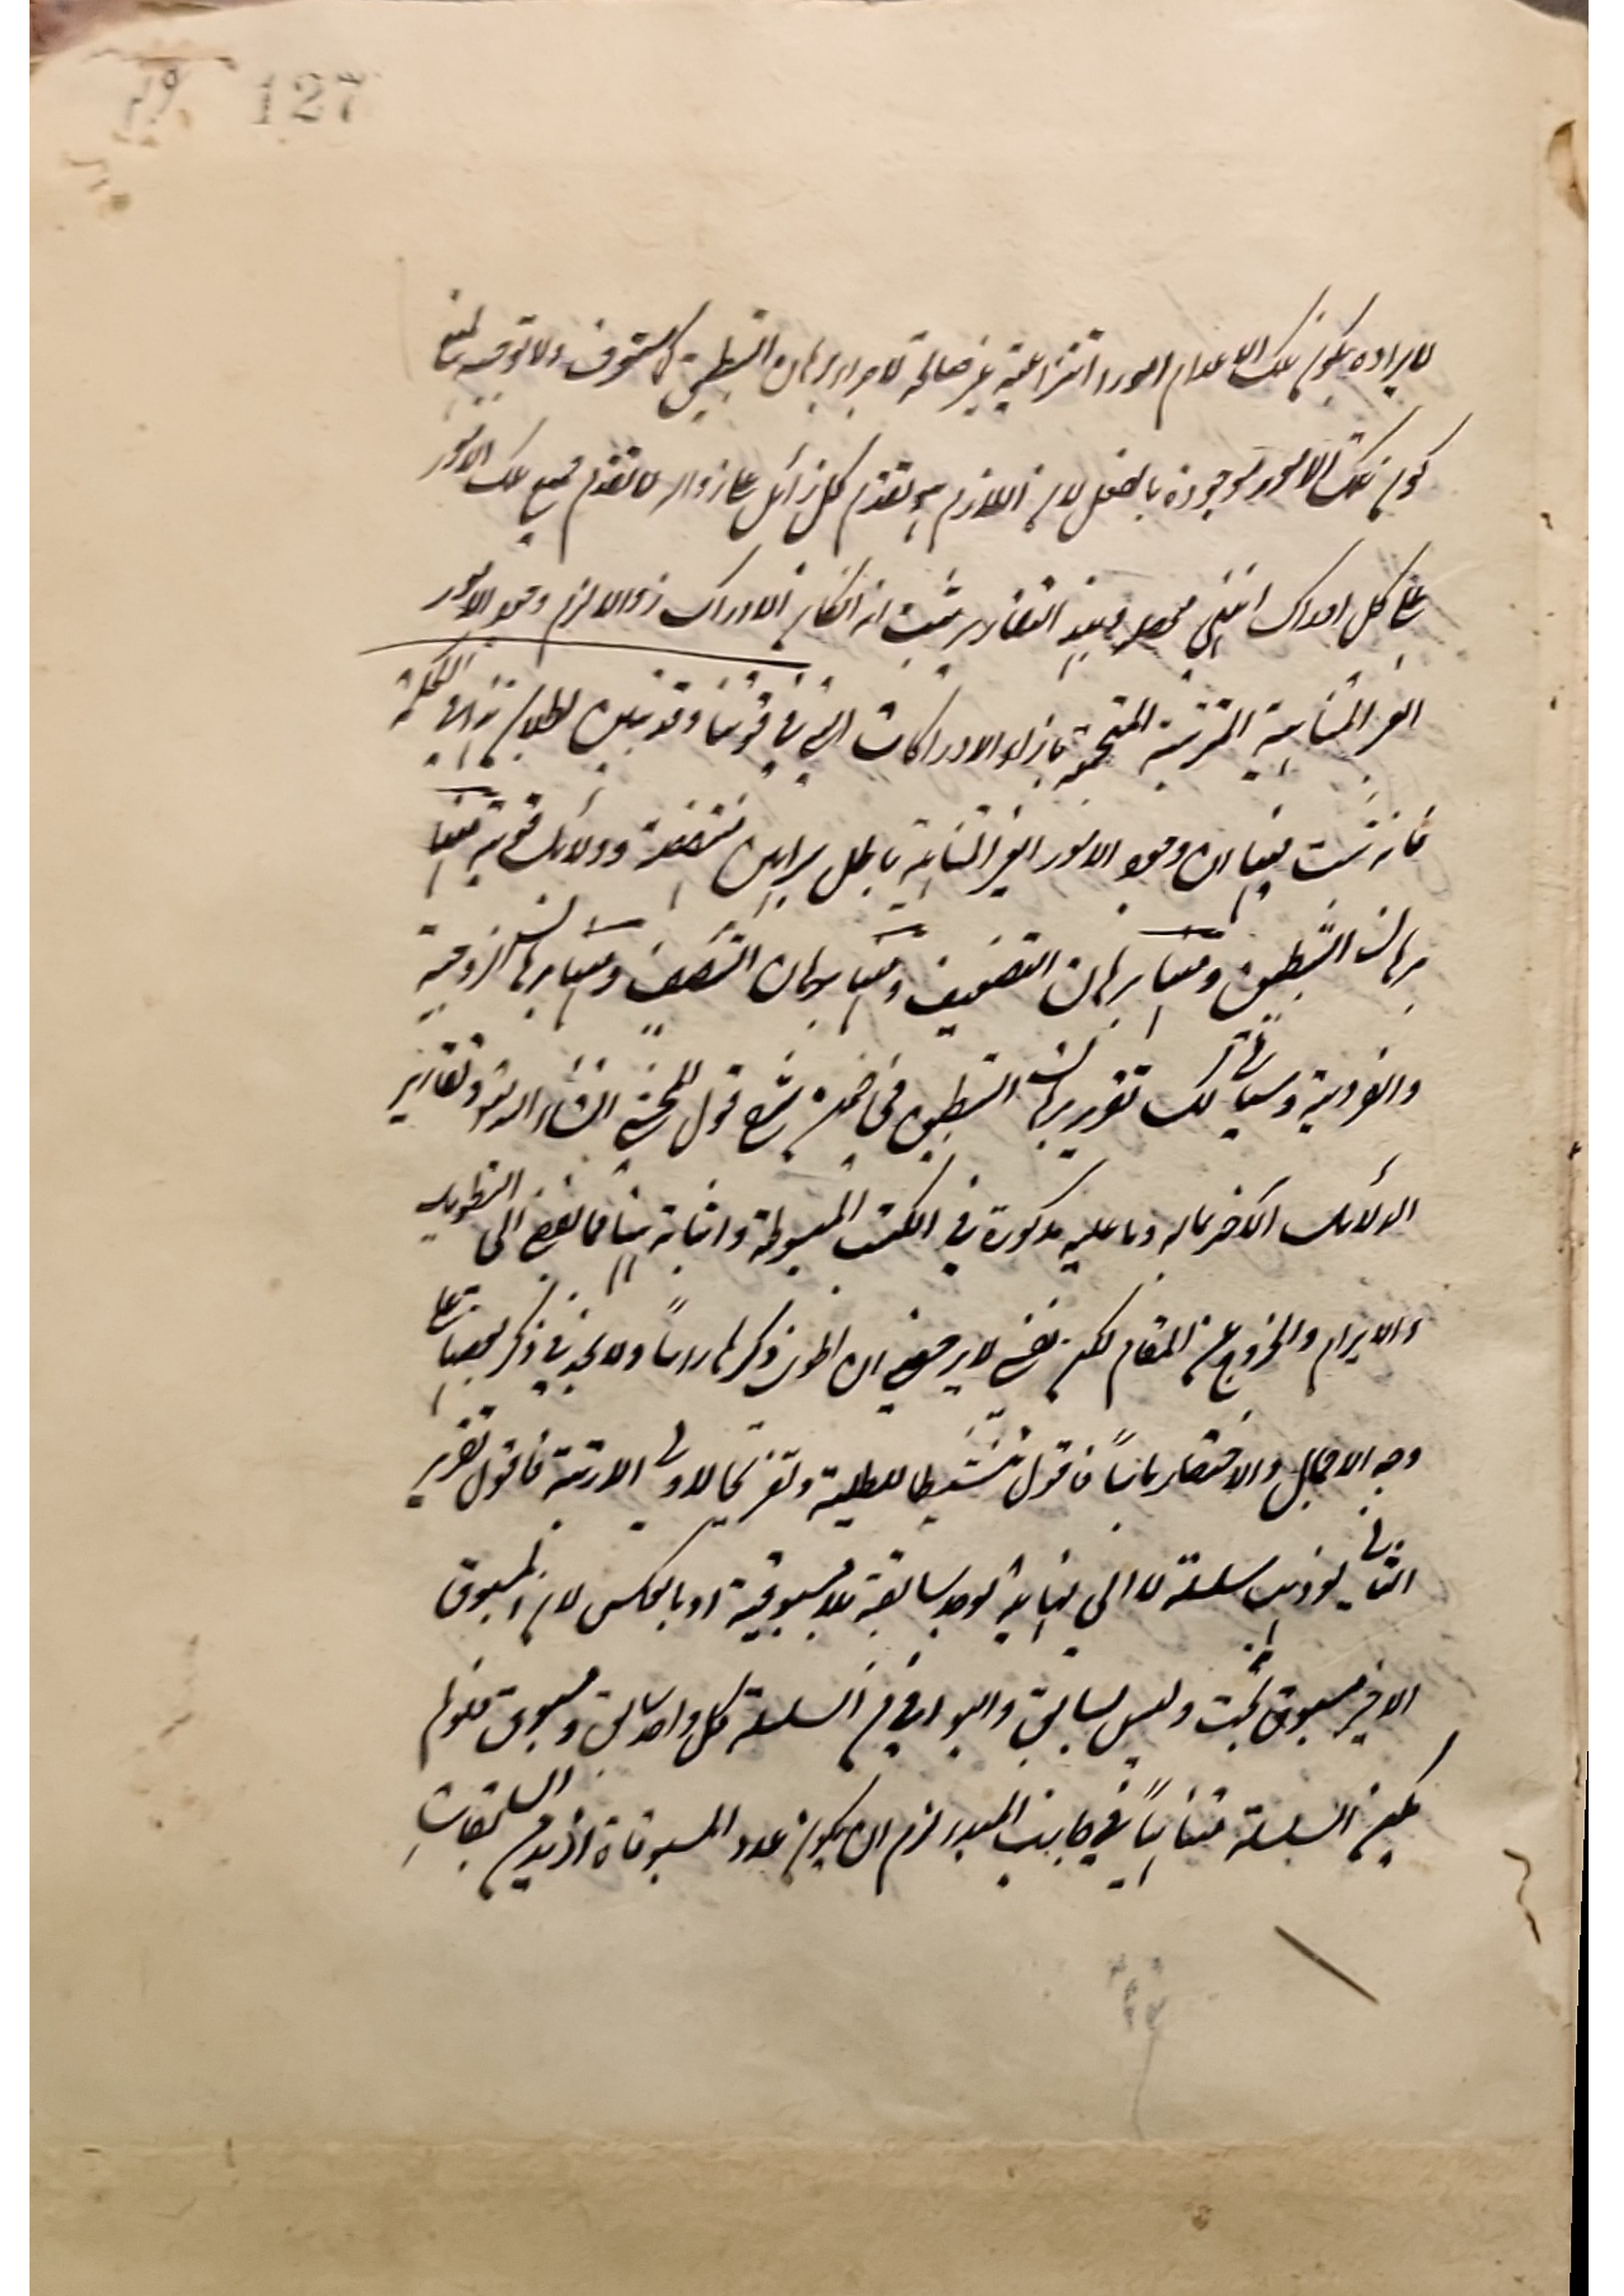 127
لايراده بكون تلك الاعدام امورا انتزاعية غير صالحة لاجراء برهان التطبيق كما ستعرف ولا توجيه لمنع
كون تلك الامور موجودة بالفعل لان اللازم هو تقدم كل زائل على زواله لا تقدم جميع تلك الامور
على كل ادراك انتهى محصله فبهذا التقارير ثبت انه انكان الادراك زوالا لزم وجود الامور
الغير المتناهية المترتبة المجتمعة بازاء الادراكات التي في قوتنا وقد تبين بطلانه في الحكمة
فانه ثبت فيها ان وجود الامور الغير المتناهية باطل ببراهين متعددة ودلائل قوية منها
برهان التطبيق ومنها برهان التضعيف ومنها برهان التضايف ومنها برهان الزوجية
والفردية وسياتى لك تقرير برهان التطبيق في ضمن شرح قول المحشي انشاء الله تعالى وتقارير
الدلائل الأخر بماله وما عليه مذكورة في الكتب المبسوطة واثباته هنا مما يفضي الى التطويل
والابرام والخروج عن المقام لكن نفسي لا يرضى ان اطوى ذكرها راسا ولا بد في ذكر بعضها على
وجه الاجمال والاختصار باسا فاقول تنشيطا للطلبة وتفريحا لاولى الادربة فاقول تقرير
الثانى لو ذهب سلسلة لا الى نهاية لوجد سابقة بلا مسبوقية او بالعكس لان المسبوق
الاخير مسبوق بحت وليس بسابق والبواقي في السلسلة كل واحد سابق ومسبوق فلو لم
يكن السلسلة متناهياً في جانب المبدء لزم ان يكون عدد المسبوقات ازيد من السابقات